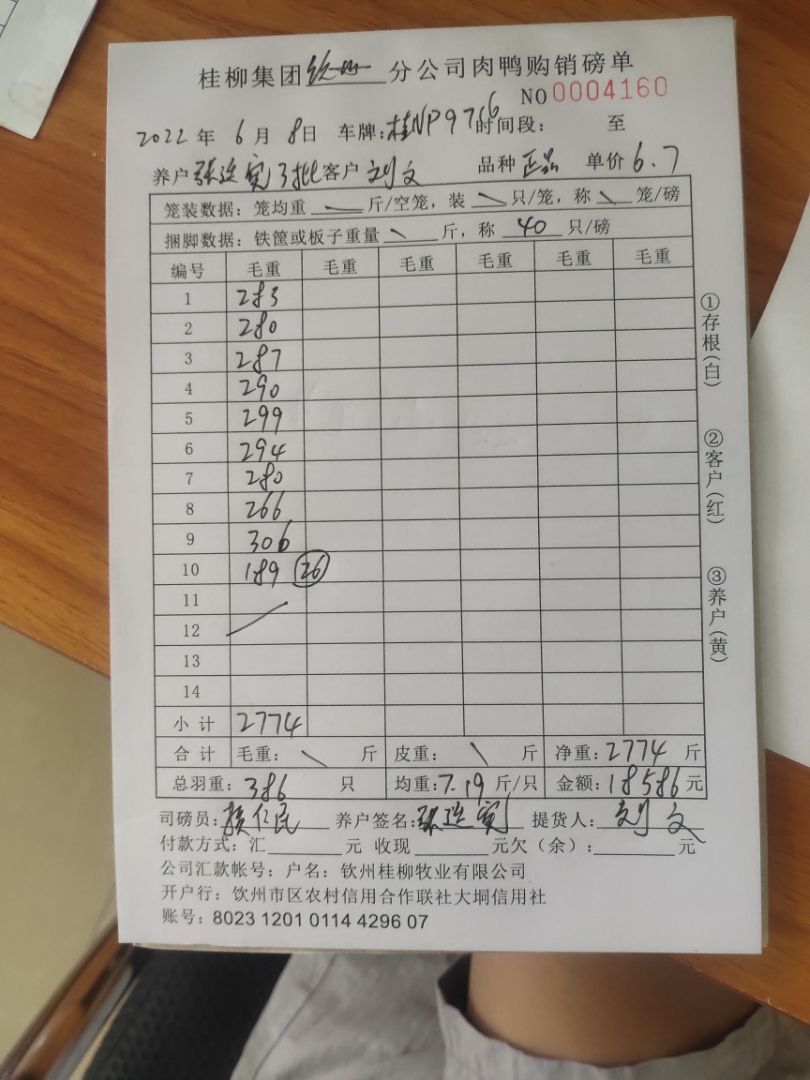 桂柳集团钦州分公司肉鸭购销磅单
NO 0004160
2022年6月8日 车牌:桂NP9766 时间段: 至
养户 张连宽3批 客户 刘文 品种 正品 单价 6.7
笼装数据:笼均重 \ 斤/空笼,装 \ 只/笼,称 \ 笼/磅
捆脚数据:铁筐或板子重量 \ 斤,称 40 只/磅
编号 毛重 毛重 毛重 毛重 毛重 毛重
1 283
2 280
3 287
4 290
5 299
6 294
7 280
8 266
9 306
10 189 26
11
12
13
14
小计 2774
合计 毛重: \ 斤 皮重: \ 斤 净重:2774 斤
总羽重:386 只 均重:7.19 斤/只 金额:18586 元
司磅员: 仁民 养户签名:张连宽 提货人:刘文
付款方式:汇 元 收现 元欠(余): 元
公司汇款帐号:户名:钦州桂柳牧业有限公司
开户行:钦州市区农村信用合作联社大垌信用社
账号:8023 1201 0114 4296 07
①存根(白)
②客户(红)
③养户(黄)